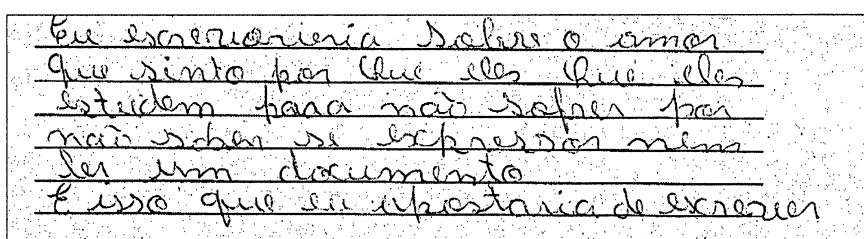 Eu escreveriaria sobre o amor
que sinto por que eles que eles
estudem para não sofrer por
não saber se expressar nem
ler um documento
É isso que eu apostaria de escrever